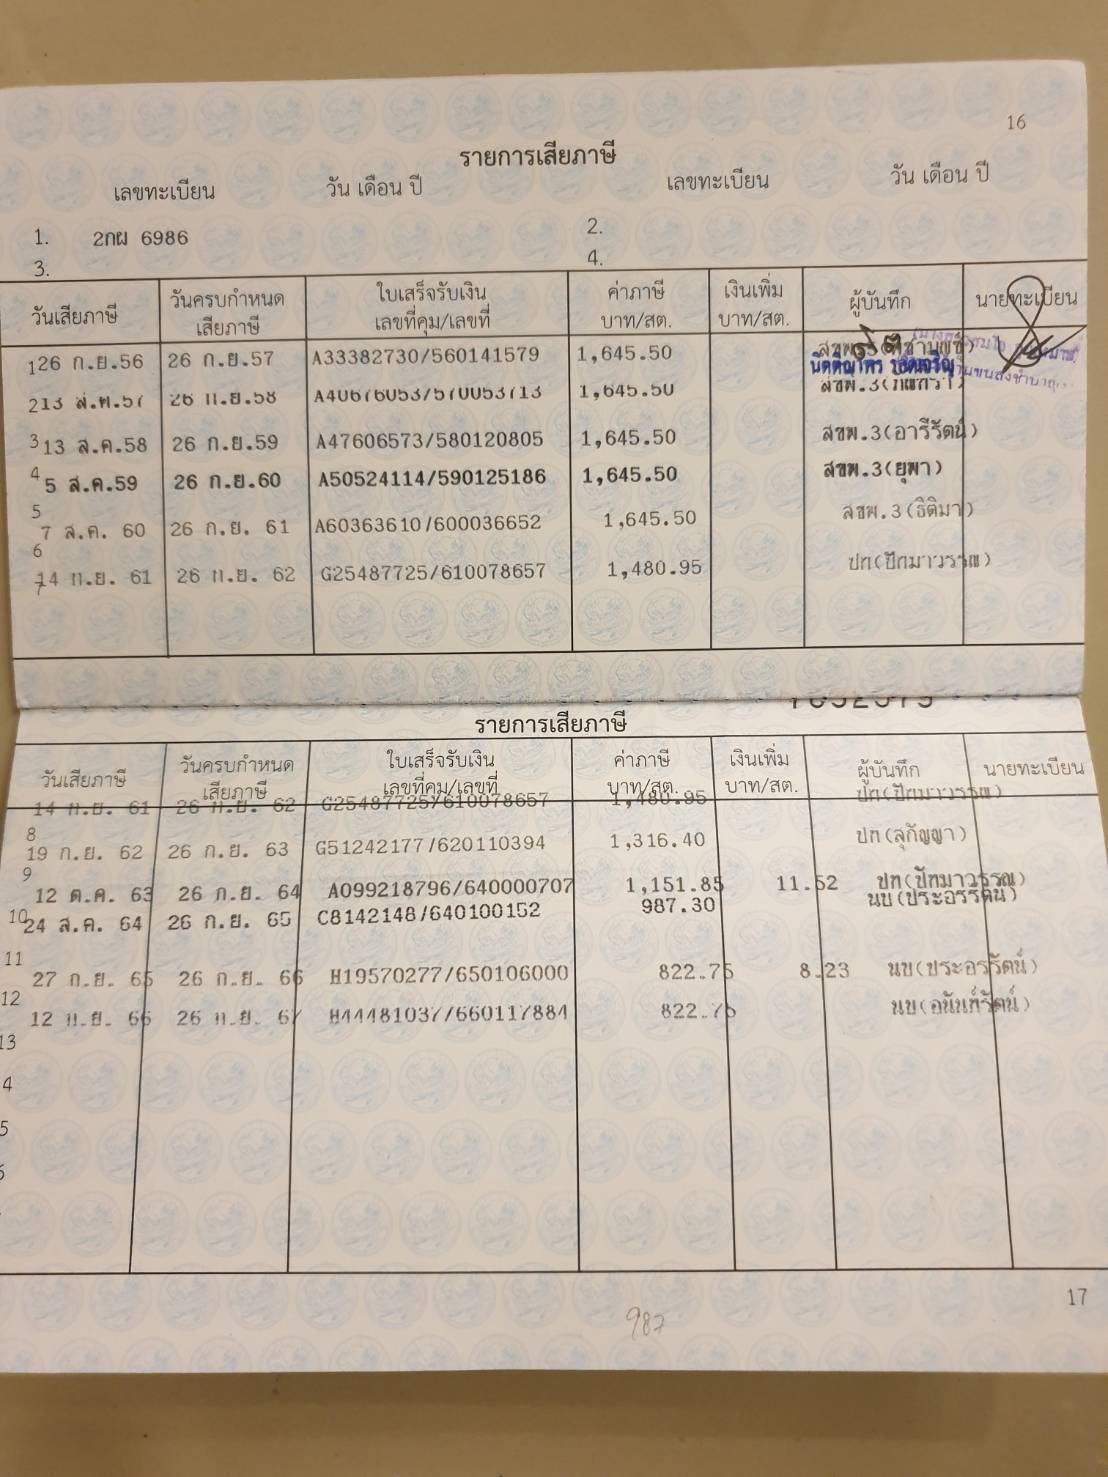 16
รายการเสียภาษี
เลขทะเบียน วัน เดือน ปี เลขทะเบียน วัน เดือน ปี
1. 2กผ 6986 2.
3. 4.
วันเสียภาษี วันครบกำหนดเสียภาษี ใบเสร็จรับเงิน เลขที่คุม/เลขที่ ค่าภาษี บาท/สต. เงินเพิ่ม บาท/สต. ผู้บันทึก นายทะเบียน
1 26 ก.ย.56 26 ก.ย.57 A33382730/560141579 1,645.50
2 13 ส.ค.57 26 ก.ย.58 A40676053/570053713 1,645.50 สขพ.3
3 13 ส.ค.58 26 ก.ย.59 A47606573/580120805 1,645.50 สขพ.3(อารีรัตน์)
4 5 ส.ค.59 26 ก.ย.60 A50524114/590125186 1,645.50 สขพ.3(ยุพา)
5 7 ส.ค. 60 26 ก.ย. 61 A60363610/600036652 1,645.50 สขพ.3(ธิติมา)
6
7 14 ก.ย. 61 26 ก.ย. 62 G25487725/610078657 1,480.95 ปก(ปัทมาวรรณ)
รายการเสียภาษี
วันเสียภาษี วันครบกำหนดเสียภาษี ใบเสร็จรับเงิน เลขที่คุม/เลขที่ ค่าภาษี บาท/สต. เงินเพิ่ม บาท/สต. ผู้บันทึก นายทะเบียน
14 ก.ย. 61 26 ก.ย. 62 G25487725/610078657 1,480.95 ปก(ปัทมาวรรณ)
8 19 ก.ย. 62 26 ก.ย. 63 G51242177/620110394 1,316.40 ปท(ลุกัญญา)
9 12 ต.ค. 63 26 ก.ย. 64 A099218796/640000707 1,151.85 11.52 ปท(ปัทมาวรรณ)
10 24 ส.ค. 64 26 ก.ย. 65 C8142148/640100152 987.30 นบ(ประอรรัตน์)
11 27 ก.ย. 65 26 ก.ย. 66 H19570277/650106000 822.75 8.23 นบ(ประอรรัตน์)
12 12 ก.ย. 66 26 ก.ย. 67 H44481037/660117884 822.75 นบ(อนันท์รัตน์)
13
4
5
17
987